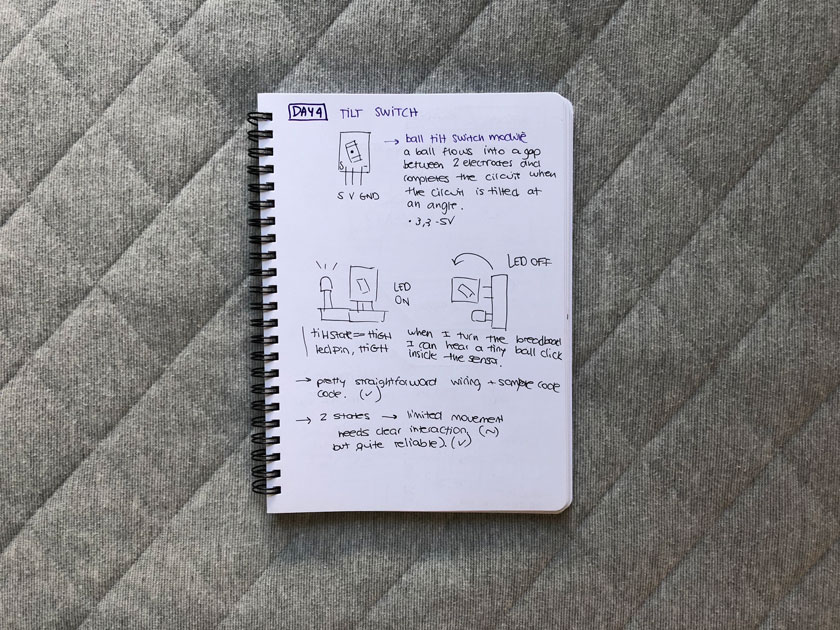 DAY 4 TILT SWITCH
→ ball tilt switch module
a ball flows into a gap
between 2 electrodes and
completes the circuit when
the circuit is tilted at
an angle.
• 3,3 - 5V
S -
S V GND
LED ON
LED OFF
tiltstate == HIGH
ledpin, HIGH
when I turn the breadboad
I can hear a tiny ball click
inside the sensa.
→ pretty straightforward wiring + sample code
code. (✓)
→ 2 states → limited movement
needs clear interaction (~)
but quite reliable). (✓)